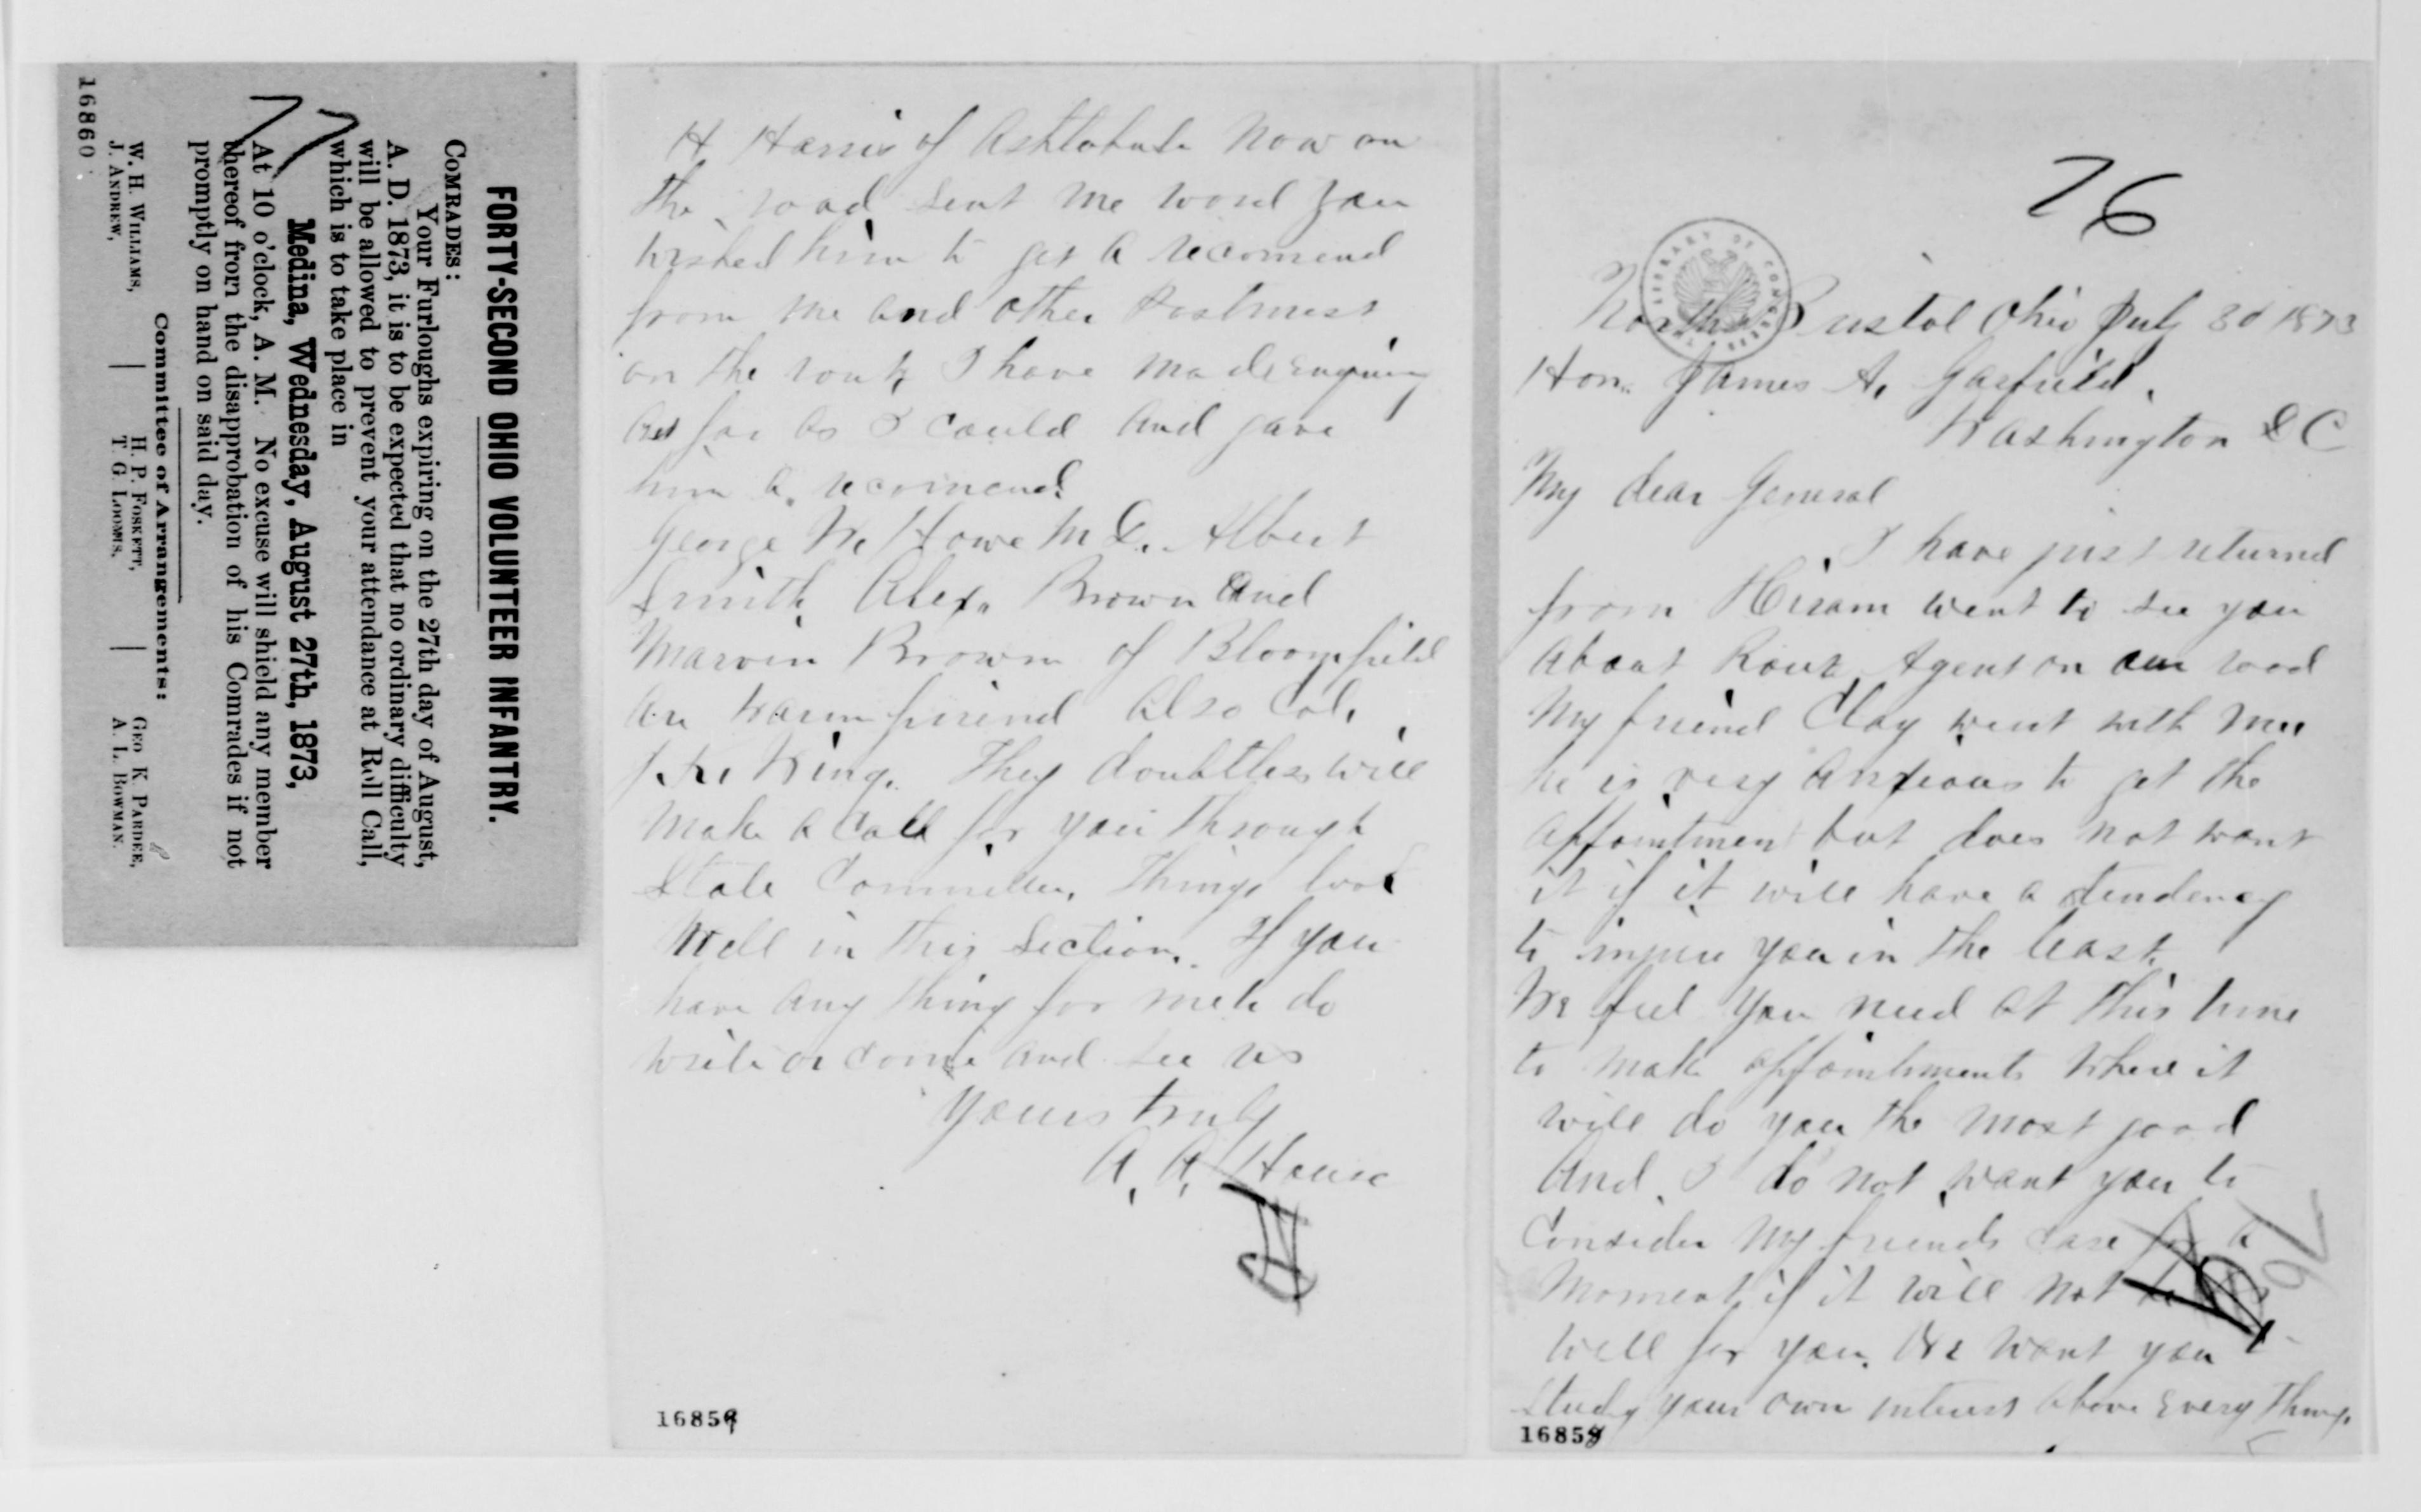 76
North Bristol Ohio July 3d 1873
Hon. James A. Garfield.
Washington D C
My dear General
I have just returned
from Hiram went to see you
about Rout Agent on our road
My friend Clay went with me
he is very anxious to get the
appointment but does not want
it if it will have a tendency
to injure you in the least.
We feel you need at this time
to make appointments where it
will do you the most good
And I do not want you to
Consider my friends case for a
moment if it will not
well for you. We want you to
study your own interest above every thing.
76
16858
H Harris of Ashtabula now on
the road sent me word you
wished him to get a recomend
from me and other Postmast
on the rout I have made enquiry
as far as I could and gave
him a recomend.
George W. Howe M.D. Albert
Smith Alex. Brown and
Marvin Brown of Bloomfield
are warm friend Also Col.
Wing. They doubtless will
make a call for you through
State Committee. Things look
well in this Section. If you
have any thing for me to do
write or come and see us
Yours truly
A. A. House
16859
FORTY-SECOND OHIO VOLUNTEER INFANTRY.
COMRADES:
Your Furloughs expiring on the 27th day of August,
A. D. 1873, it is to be expected that no ordinary difficulty
will be allowed to prevent your attendance at Roll Call,
which is to take place in
Medina, Wednesday, August 27th, 1873,
At 10 o'clock, A. M. No excuse will shield any member
thereof from the disapprobation of his Comrades if not
promptly on hand on said day.
Committee of Arrangements:
W. H. WILLIAMS, H. P. FOSKETT, GEO K. PARDEE,
J. ANDREW, T. G. LOOMS, A. L. BOWMAN.
77
16860